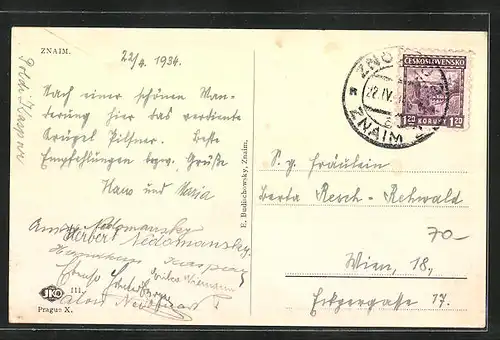 ZNAIM.
22/4. 1934.
Nach einer schönen Wan-
derung hier das verdiente
Krügel Pilsner. Beste
Empfehlungen bzw. Grüße
Hans und Maria
Poldi Kaspar
Nedomansky
Herbert Nedomansky
Kaspar
Alois
JKO
III.
Prague X.
E. Budischowsky, Znaim.
ZNO
22.IV.
ZNAIM
ČESKOSLOVENSKO
1.20 KORUNY 1.20
S. g. Fräulein
Berta Resch-Rehwald
70-
Wien, 18.,
Eckpergasse 17.